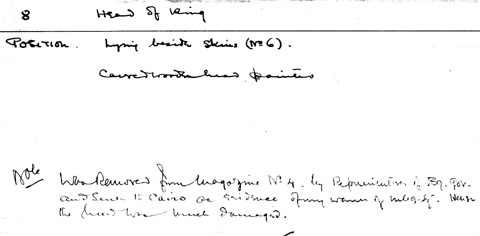 8 Head of King
POSITION. Lying beside skins (No 6).
Carved wooden head painted
Note Was removed from Magazine No 4. by Representatives of Eg. Gov.
and sent to Cairo as evidence of my Hence
the head was much damaged.